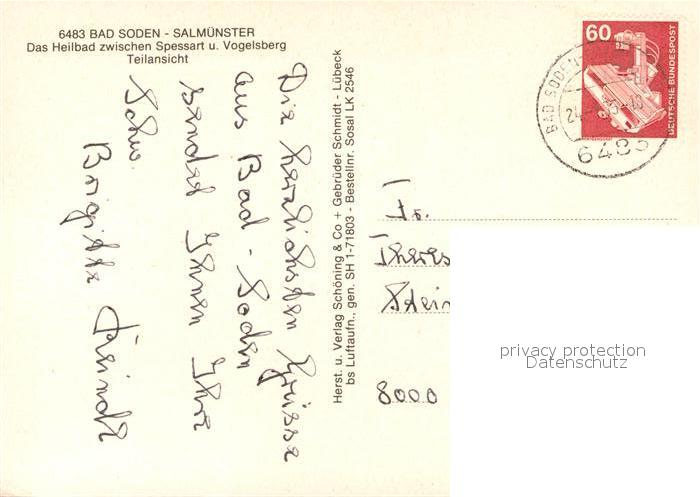 6483 BAD SODEN - SALMÜNSTER
Das Heilbad zwischen Spessart u. Vogelsberg
Teilansicht
Die herzlichsten Grüsse
aus Bad - Soden
sendet Ihnen Ihre
Schw.
Brigitte
Herst. u. Verlag Schöning & Co + Gebrüder Schmidt - Lübeck
bs Luftaufn., gen. SH 1-71803 - Bestellnr. Sosal LK 2546
60
DEUTSCHE BUNDESPOST
BAD SODEN
6483
Fr.
Theres
Stein
8000
privacy protection
Datenschutz